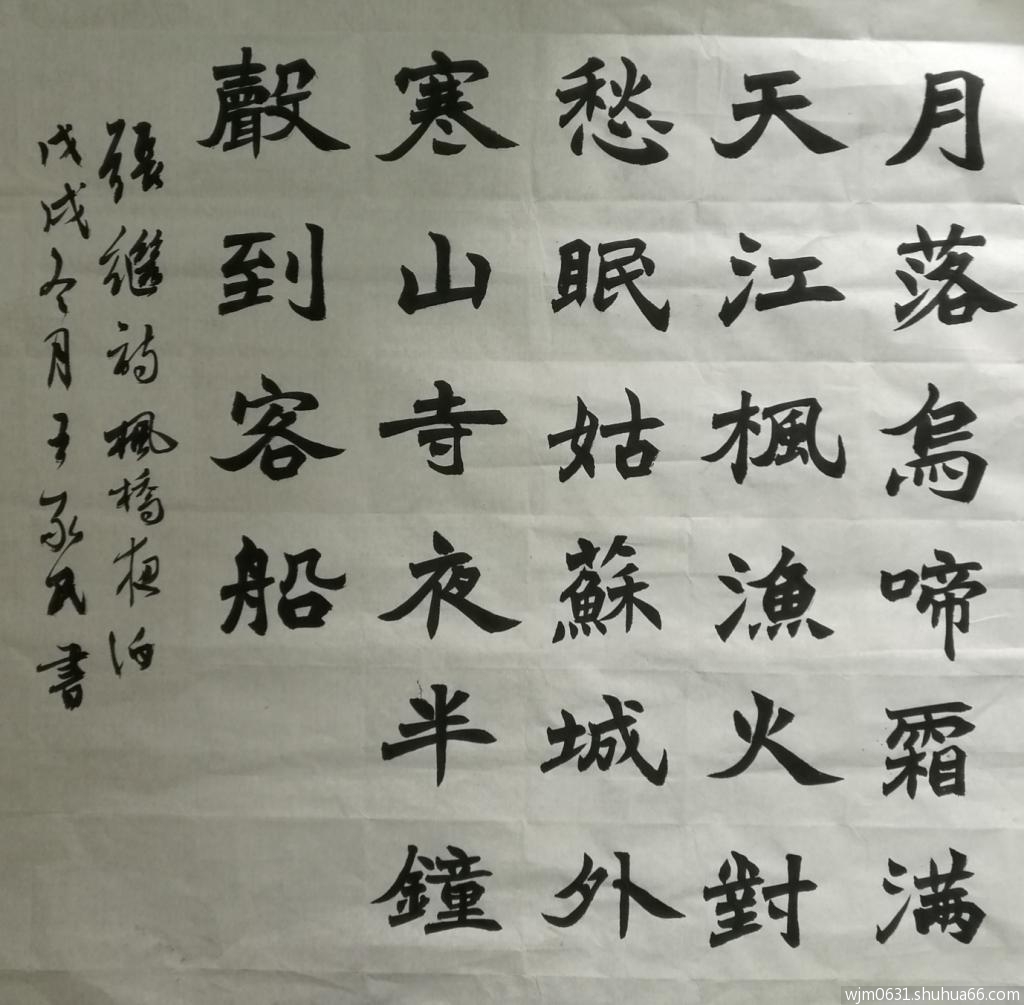 月落烏啼霜满
天江楓漁火對
愁眠姑蘇城外
寒山寺夜半鐘
聲到客船
張繼詩楓橋夜泊
戊戌冬月王承民書
wjm0631.shuhua66.com